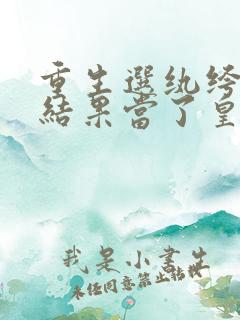 重生選紈绔
結果當了皇
我是小書生
未经同意禁止转载